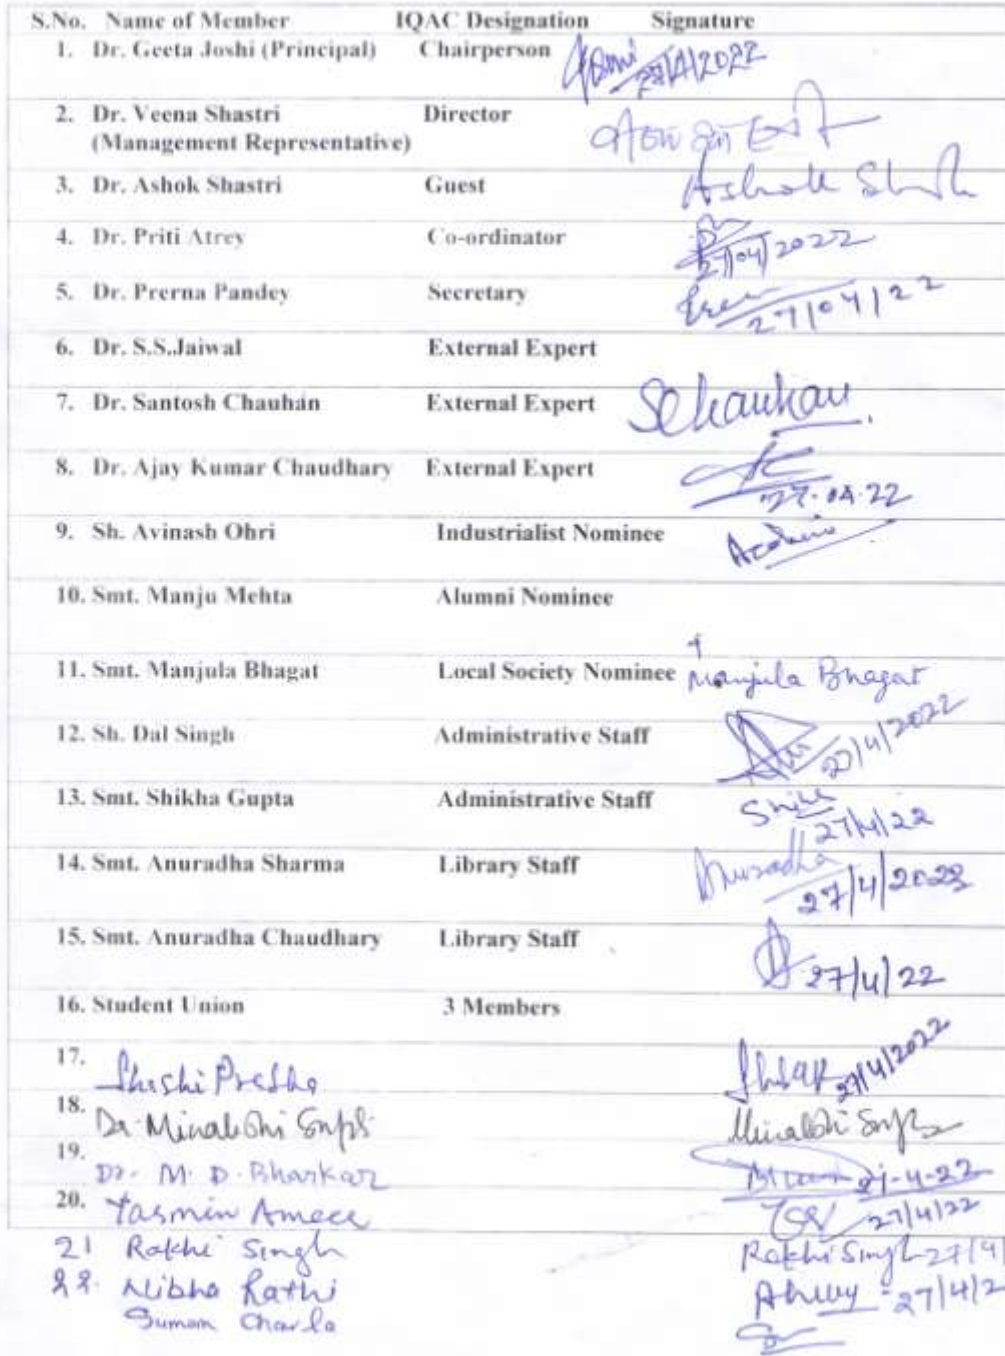 S.No. Name of Member IQAC Designation Signature
1. Dr. Geeta Joshi (Principal) Chairperson 27/4/2022
2. Dr. Veena Shastri Director
(Management Representative)
3. Dr. Ashok Shastri Guest Ashok
4. Dr. Priti Atrey Co-ordinator 27/04/2022
5. Dr. Prerna Pandey Secretary 27/04/22
6. Dr. S.S.Jaiwal External Expert
7. Dr. Santosh Chauhan External Expert SChauhan
8. Dr. Ajay Kumar Chaudhary External Expert 27.04.22
9. Sh. Avinash Ohri Industrialist Nominee
10. Smt. Manju Mehta Alumni Nominee
11. Smt. Manjula Bhagat Local Society Nominee Manjula Bhagat
12. Sh. Dal Singh Administrative Staff 27/4/2022
13. Smt. Shikha Gupta Administrative Staff 27/4/22
14. Smt. Anuradha Sharma Library Staff Anuradha 27/4/2022
15. Smt. Anuradha Chaudhary Library Staff 27/4/22
16. Student Union 3 Members
17. Shashi Prabha 27/4/2022
18. Dr. Minakshi Gupta Minakshi Gupta
19. Dr. M. D. Bharkar 27-4-22
20. Yasmin Ameer 27/4/22
21 Rakhi Singh Rakhi Singh 27/4/
22. Nibha Rathi 27/4/2
Suman Chawla